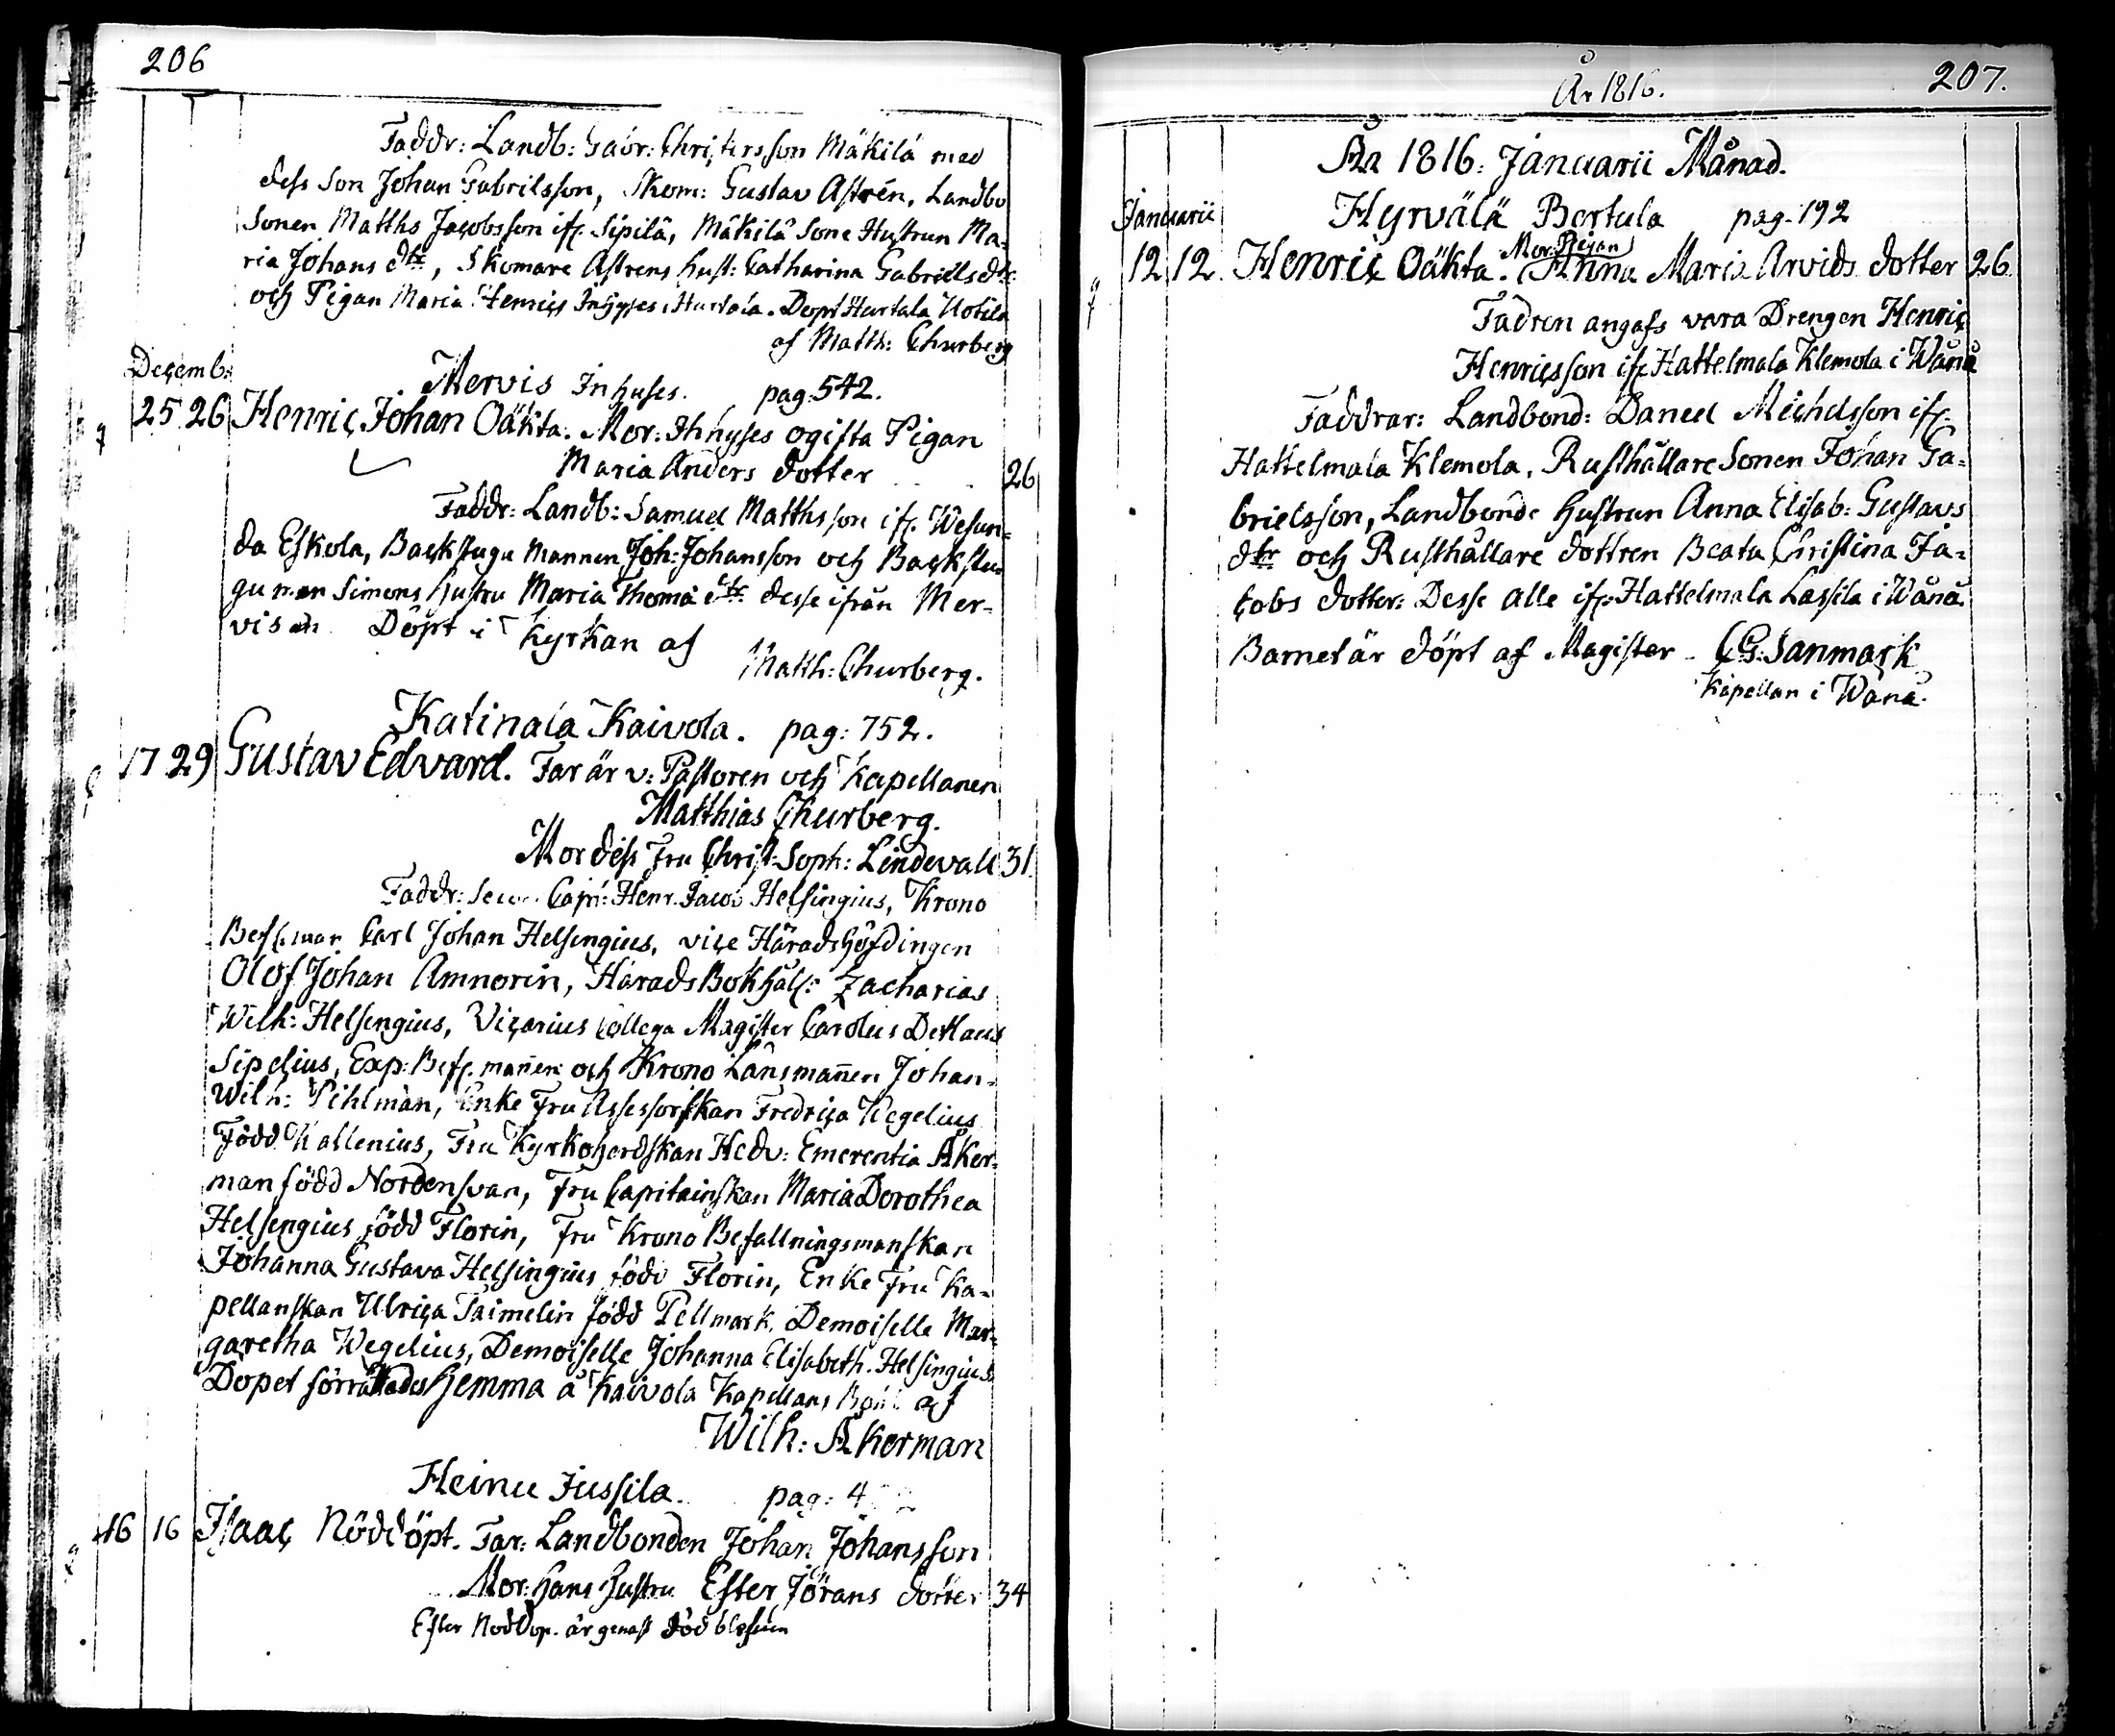 206
Faddr: Landb: Gabr: Christersson Mäkilä med
dess Son Johan Gabrielsson, Skom: Gustav Astrén, Landbo
Sonen Matths Jacobsson ifr. Sipilä, Mäkilä Sone Hustrun Ma=
ria Johans dtr, Skomare Astrens hust: Catharina Gabriels dtr:
och Pigan Maria Henrics Inhyses Hurtala. Döpt Hurtala Uotila
af Matth: Churberg
Decemb:
Mervis Inhuses. pag: 542.
25 26 Henric Johan Oäkta. Mor: Inhyses ogifta Pigan
Maria Anders dotter 26
Faddr: Landb: Samuel Matthsson ifr. Wesun=
da Eskola, Backstugu Mannen Joh: Johansson och Backstu=
gu man Simons hustru Maria Thomä dtr desse ifrån Mer=
vis Döpt i Kyrkan af
Matth: Churberg.
Katinala Kaivola. pag: 752.
17 29 Gustav Edvard. Far är v: Pastoren och Kapellanen
Matthias Churberg.
Mor dess Fru Christ: Soph: Lindevall 31.
Faddr: Capit: Henr. Jacob Helsingius, Krono
Bef. man Carl Johan Helsengius, vice Häradshöfdingen
Olof Johan Amnorin, Härads Bokhåll: Zacharias
Wilh: Helsengius, Vicarius Collega Magister Carolus Detlaus
Sipelius, Exp: Bef. mannen och Krono Länsmannen Johan
Wilh: Pihlman, Enke Fru Assessorskan Fredrica Wegelius
Född Wallenius, Fru Kyrkoherdskan Hedv: Emerentia Åker=
man född Nordensvan, Fru Capitainskan Maria Dorothea
Helsengius född Florin, Fru Krono Befallningsmanskan
Johanna Gustava Helsingius född Florin, Enke Fru Ka=
pellanskan Ulrica Taimelin född Pellmark, Demoiselle Mar=
garetha Wegelius, Demoiselle Johanna Elisabeth Helsingius
Dopet förrättades hemma å Kaivola Kapellans Bohl af
Wilh: Åkerman
Heinu Jussila. pag: 4
16 16 Isaac Nöddöpt. Far: Landbonden Johan Johansson
Mor: hans hustru Ester Jörans dotter 34
Efter Nöddop. är genast död blefven
År 1816.
207.
År 1816. Januarii Månad.
Januarii
Hyrvälä Bertula pag. 192
Mor: Pigan
12 12. Henric Oäkta. Anna Maria Arvids dotter 26.
Fadren angafs vara Drengen Henric
Henricsson ifr Hattelmala Klemola i Wånå
Faddrar: Landbond: Daniel Michelsson ifr.
Hattelmala Klemola, Rusthållare Sonen Johan Ga=
brielsson, Landbonde hustrun Anna Elisab: Gustavs
dtr och Rusthållare dottren Beata Christina Ja=
cobs dotter: Desse alle ifr Hattelmala Lassila i Wånå.
Barnet är döpt af Magister C. G. Sanmark
Kapellan i Wånå.